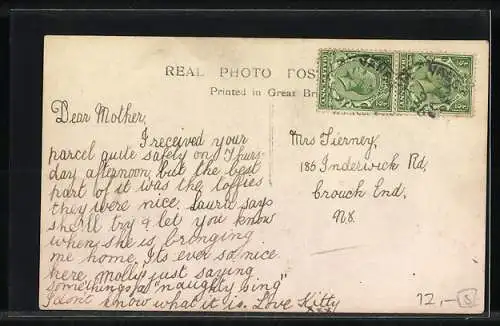 REAL PHOTO POST
Printed in Great Bri
Dear Mother,
I received your
parcel quite safely on Thurs-
day afternoon, but the best
part of it was the toffies
they were nice. Laurie says
she'll try & let you know
when she is bringing
me home. It's ever so nice
here. Molly just saying
something a "naughty bing"
I don't know what it is. Love Kitty
xxx
Mrs Tierney,
185 Inderwick Rd,
Crouch End,
N8
12,- S